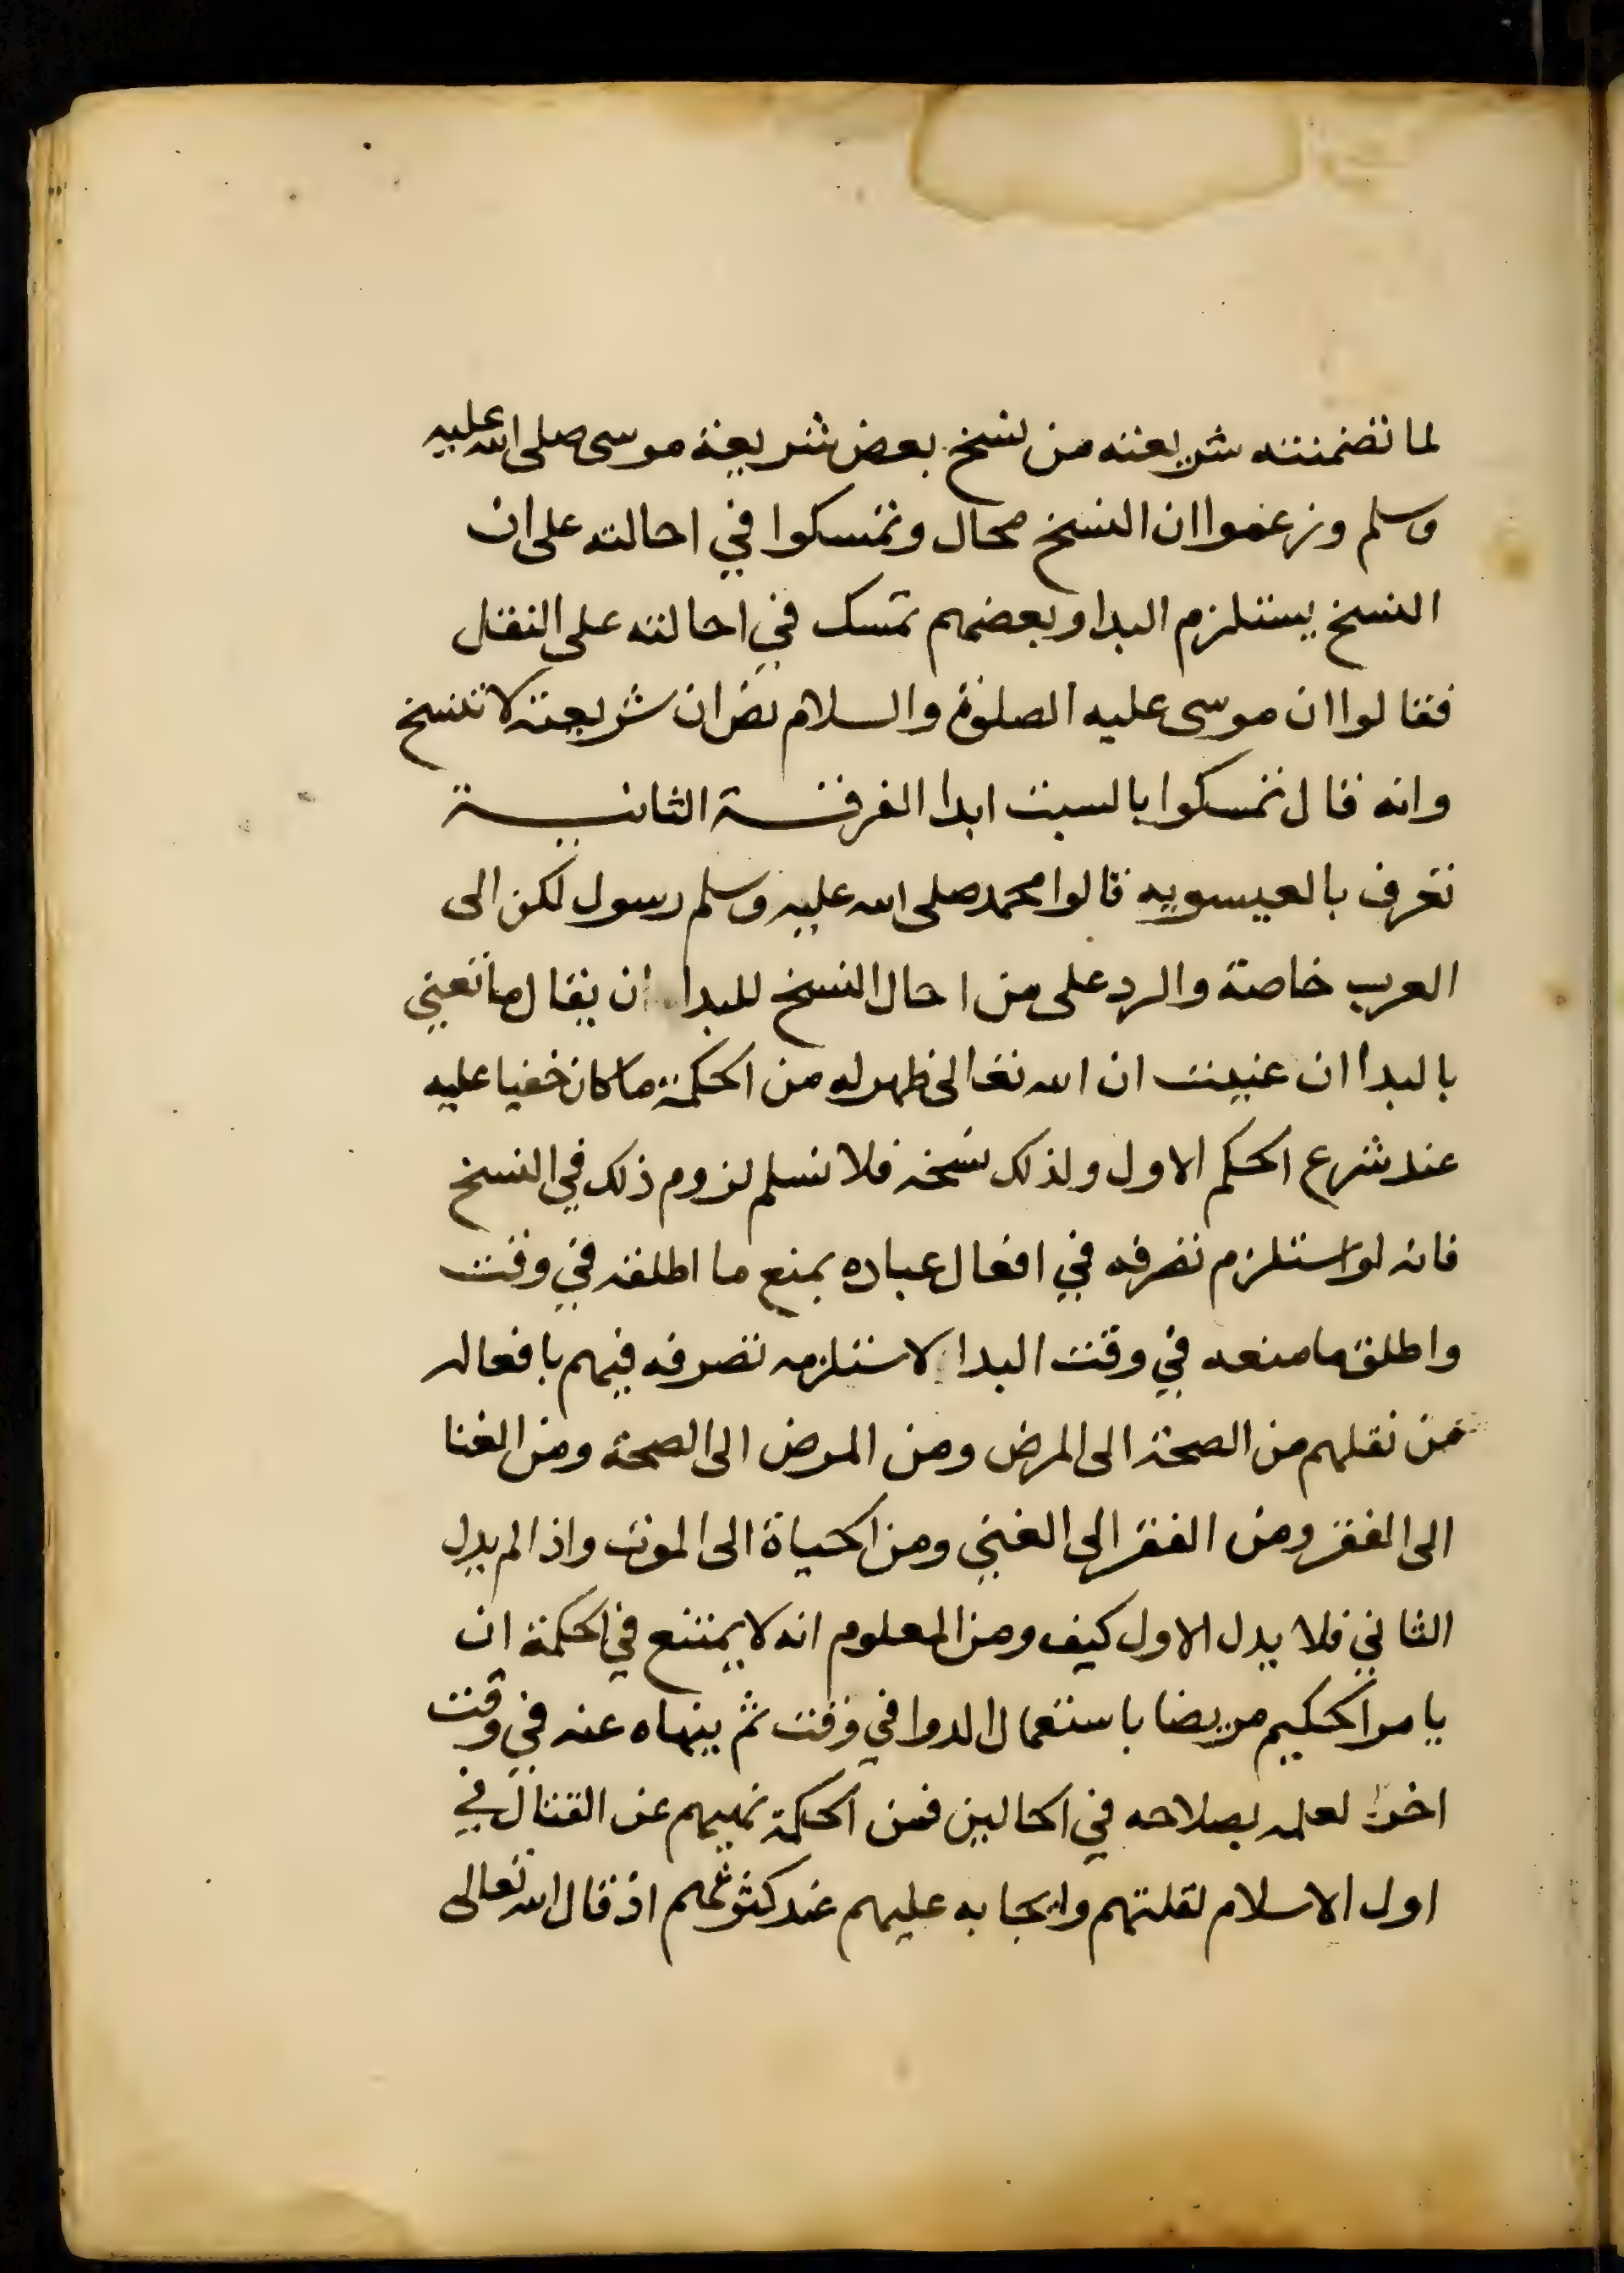 لما تضمنته شريعته من نسخ بعض شريعة موسى صلى الله عليه
وسلم وزعموا ان النسخ محال وتمسكوا في احالته على ان
النسخ يستلزم البدا وبعضهم تمسك في احالته على النقل
فقالوا ان موسى عليه الصلوة والسلام نص ان شريعته لا تنسخ
وانه قال تمسكوا بالسبت ابدا الفرقة الثانية
تعرف بالعيسويه قالوا محمد صلى الله عليه وسلم رسول لكن الى
العرب خاصة والرد على من احال النسخ للبدا ان يقال ما تعني
بالبدا ان عنيت ان الله تعالى ظهر له من الحكمة ما كان خفيا عليه
عند شرع الحكم الاول ولذلك نسخه فلا نسلم لزوم ذلك في النسخ
فانه لو استلزم تصرفه في افعال عباده بمنع ما اطلقه في وقت
واطلق ما منعه في وقت البدا لاستلزمه تصرفه فيهم بافعاله
من نقلهم من الصحة الى المرض ومن المرض الى الصحة ومن الغنا
الى الفقر ومن الفقر الى الغني ومن الحياة الى الموت واذا لم يدل
الثاني فلا يدل الاول كيف ومن المعلوم انه لا يمتنع في الحكمة ان
يامر الحكيم مريضا باستعمال الدوا في وقت ثم ينهاه عنه في وقت
اخر لعلمه بصلاحه في الحالين فمن الحكمة نهيهم عن القتال في
اول الاسلام لقلتهم وايجابه عليهم عند كثرتهم اذ قال الله تعالى